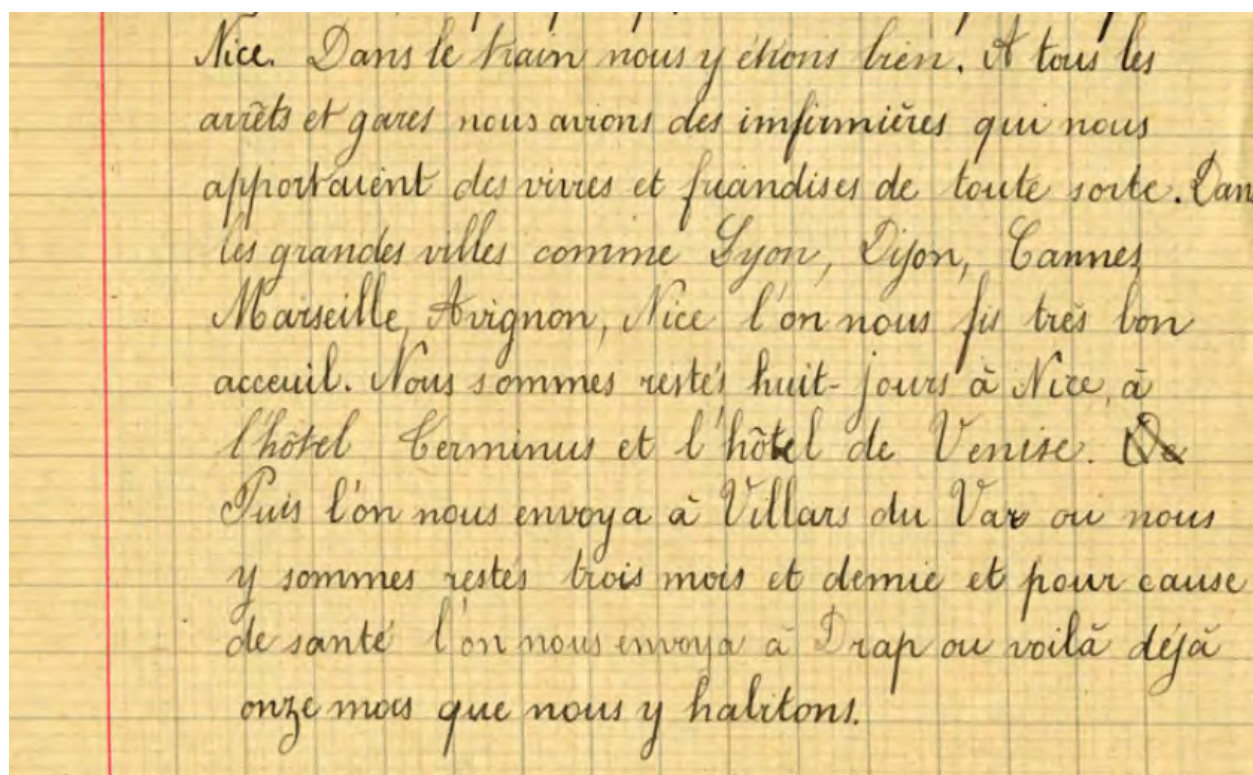 Nice. Dans le train nous y étions bien. A tous les
arrêts et gares nous avions des infirmières qui nous
apportaient des vivres et friandises de toute sorte. Dans
les grandes villes comme Lyon, Dijon, Cannes,
Marseille, Avignon, Nice l'on nous fis très bon
acceuil. Nous sommes restés huit-jours à Nice, à
l'hôtel Terminus et l'hôtel de Venise. De
Puis l'on nous envoya à Villars du Var ou nous
y sommes restés trois mois et demie et pour cause
de santé l'on nous envoya à Drap ou voilà déjà
onze mois que nous y habitons.